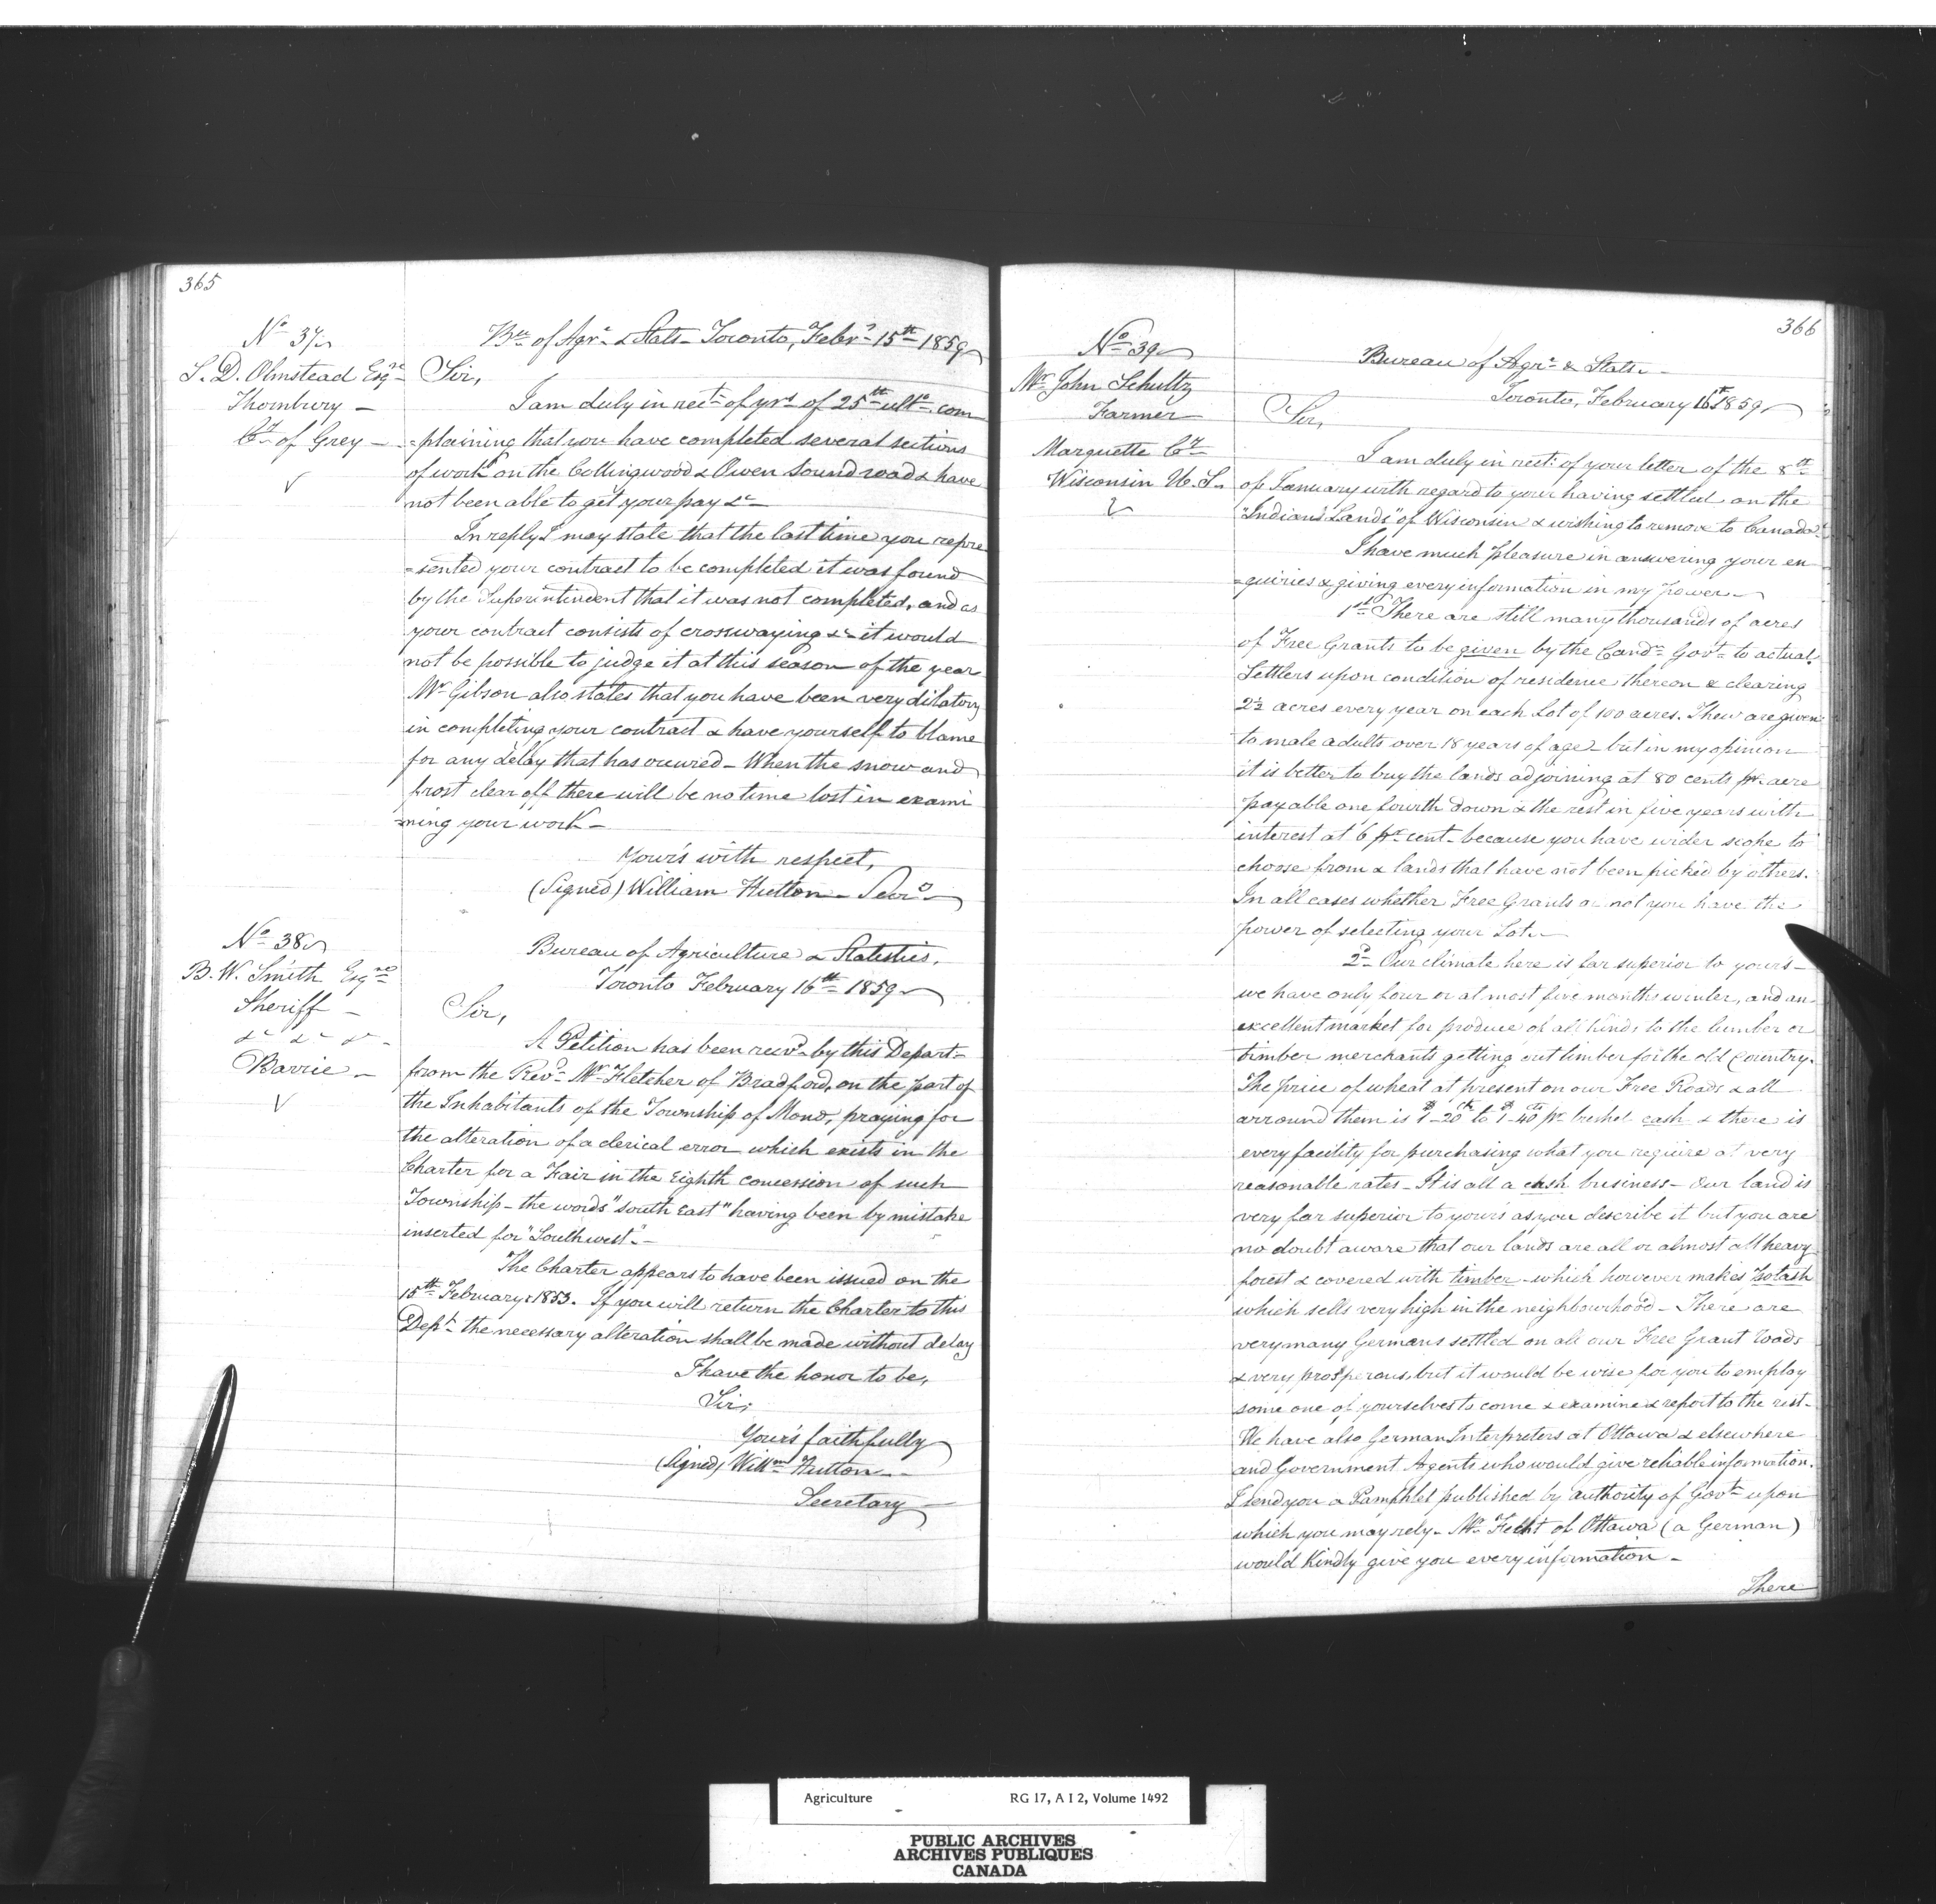 365
No 37
S. D. Olmstead Esqre
Thornbury —
Cy of Grey —
Bu of Agre & Stats — Toronto, Feby 15th 1859
Sir,
I am duly in rect of yrs of 25th ulto com
=plaining that you have completed several sections
of work on the Collingwood & Owen Sound road & have
not been able to get your pay &c —
In reply I may state that the last time you repre
=sented your contract to be completed it was found
by the Superintendent that it was not completed, and as
your contract consists of crosswaying &c it would
not be possible to judge it at this season of the year
Mr Gibson also states that you have been very dilatory
in completing your contract & have yourself to blame
for any delay that has occured — When the snow and
frost clear off there will be no time lost in exami
=ning your work —
Your's with respect,
(Signed) William Hutton — Secy
No 38
B. W. Smith Esqre
Sheriff —
&c &c &c
Barrie —
Bureau of Agriculture & Statistics,
Toronto February 16th 1859
Sir,
A Petition has been recvd by this Depart=
from the Revd Mr Fletcher of Bradford, on the part of
the Inhabitants of the Township of Mono, praying for
the alteration of a clerical error which exists in the
Charter for a Fair in the Eighth concession of such
Township — the words "south East" having been by mistake
inserted for "Southwest" —
The Charter appears to have been issued on the
15th February 1853. If you will return the Charter to this
Dept the necessary alteration shall be made without delay
I have the honor to be,
Sir,
Your's faithfully
(Signed) Willm Hutton —
Secretary
366
No 39
Mr John Schultz
Farmer
Marquette Cy
Wisconsin U. S.
Bureau of Agre & Stats —
Toronto, February 16th 1859
Sir,
I am duly in rect of your letter of the 8th
of January with regard to your having settled on the
"Indian Lands" of Wisconsin & wishing to remove to Canada
I have much pleasure in answering your en
=quiries & giving every information in my power —
1st There are still many thousands of acres
of Free Grants to be given by the Cand Govt to actual
Settlers upon condition of residence thereon & clearing
2½ acres every year on each Lot of 100 acres. These are given
to male adults over 18 years of age — but in my opinion
it is better to buy the lands adjoining at 80 cents pr acre
payable one fourth down & the rest in five years with
interest at 6 pr cent — because you have wider scope to
choose from & lands that have not been picked by others.
In all cases whether Free Grants or not you have the
power of selecting your Lot —
2d Our climate here is far superior to your's —
we have only four or at most five months winter, and an
excellent market for produce of all kinds to the lumber or
timber merchants getting out timber for the old Country.
The price of wheat at present on our Free Roads & all
arround them is $1–20cts to $1–40cts pr bushel cash & there is
every facility for purchasing what you require at very
reasonable rates — It is all a cash business — Our land is
very far superior to your's as you describe it but you are
no doubt aware that our lands are all or almost all heavy
forest & covered with timber — which however makes Potash
which sells very high in the neighbourhood — There are
very many Germans settled on all our Free Grant Roads
& very prosperous, but it would be wise for you to employ
some one of yourselves to come & examine & report to the rest —
We have also German Interpreters at Ottawa & elsewhere
and Government Agents who would give reliable information.
I send you a Pamphlet published by authority of Govt upon
which you may rely — Mr Fecht of Ottawa (a German)
would kindly give you every information —
There
Agriculture RG 17, A I 2, Volume 1492
PUBLIC ARCHIVES
ARCHIVES PUBLIQUES
CANADA